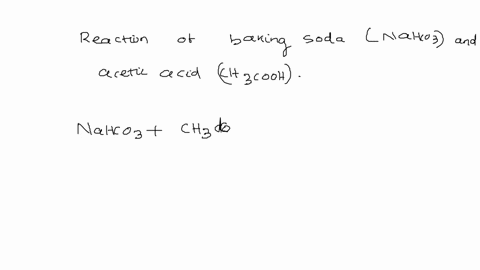 Reaction of baking soda (NaHCO3) and
acetic acid (CH3COOH).
NaHCO3 + CH3